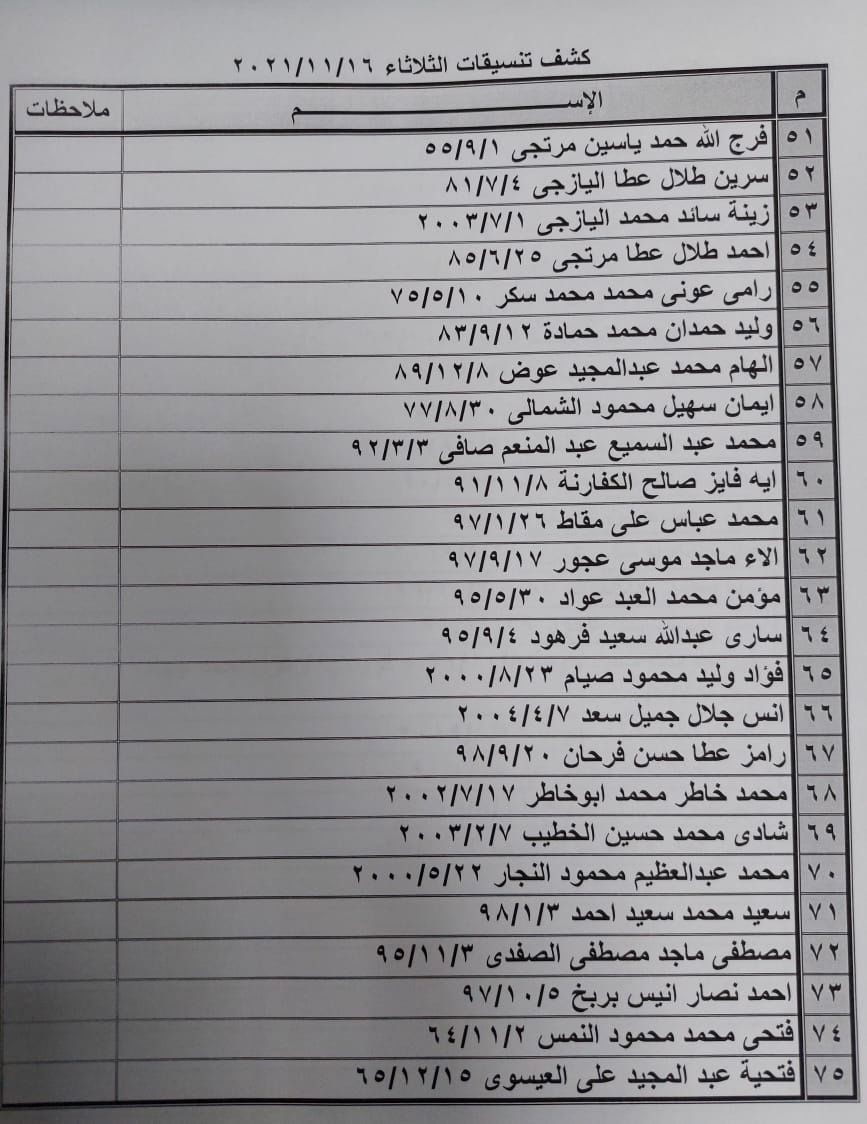 كشف تنسيقات الثلاثاء ٢٠٢١/١١/١٦
م الإســـــــــم ملاحظات
٥١ فرج الله حمد ياسين مرتجى ٥٥/٩/١
٥٢ سرين طلال عطا اليازجى ٨١/٧/٤
٥٣ زينة سائد محمد اليازجى ٢٠٠٣/٧/١
٥٤ احمد طلال عطا مرتجى ٨٥/٦/٢٥
٥٥ رامى عونى محمد محمد سكر ٧٥/٥/١٠
٥٦ وليد حمدان محمد حمادة ٨٣/٩/١٢
٥٧ الهام محمد عبدالمجيد عوض ٨٩/١٢/٨
٥٨ ايمان سهيل محمود الشمالى ٧٧/٨/٣٠
٥٩ محمد عبد السميع عبد المنعم صافى ٩٢/٣/٣
٦٠ ايه فايز صالح الكفارنة ٩١/١١/٨
٦١ محمد عباس على مقاط ٩٧/١/٢٦
٦٢ الاء ماجد موسى عجور ٩٧/٩/١٧
٦٣ مؤمن محمد العبد عواد ٩٥/٥/٣٠
٦٤ سارى عبدالله سعيد فرهود ٩٥/٩/٤
٦٥ فؤاد وليد محمود صيام ٢٠٠٠/٨/٢٣
٦٦ انس جلال جميل سعد ٢٠٠٤/٤/٧
٦٧ رامز عطا حسن فرحان ٩٨/٩/٢٠
٦٨ محمد خاطر محمد ابوخاطر ٢٠٠٢/٧/١٧
٦٩ شادى محمد حسين الخطيب ٢٠٠٣/٢/٧
٧٠ محمد عبدالعظيم محمود النجار ٢٠٠٠/٥/٢٢
٧١ سعيد محمد سعيد احمد ٩٨/١/٣
٧٢ مصطفى ماجد مصطفى الصفدى ٩٥/١١/٣
٧٣ احمد نصار انيس بربخ ٩٧/١٠/٥
٧٤ فتحى محمد محمود النمس ٦٤/١١/٢
٧٥ فتحية عبد المجيد على العيسوى ٦٥/١٢/١٥